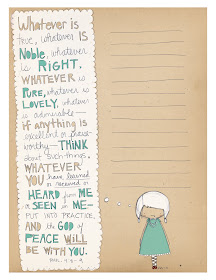 Whatever is
true, whatever IS
Noble, whatever
is RIGHT.
WHATEVER is
PURE, whatever is
LOVELY, whatever
is admirable—
if anything is
excellent or praise-
worthy—THINK
about such things.
WHATEVER
YOU have learned
or received or
HEARD from ME
or SEEN in ME—
PUT INTO PRACTICE.
AND the GOD of
PEACE WILL
BE WITH YOU.